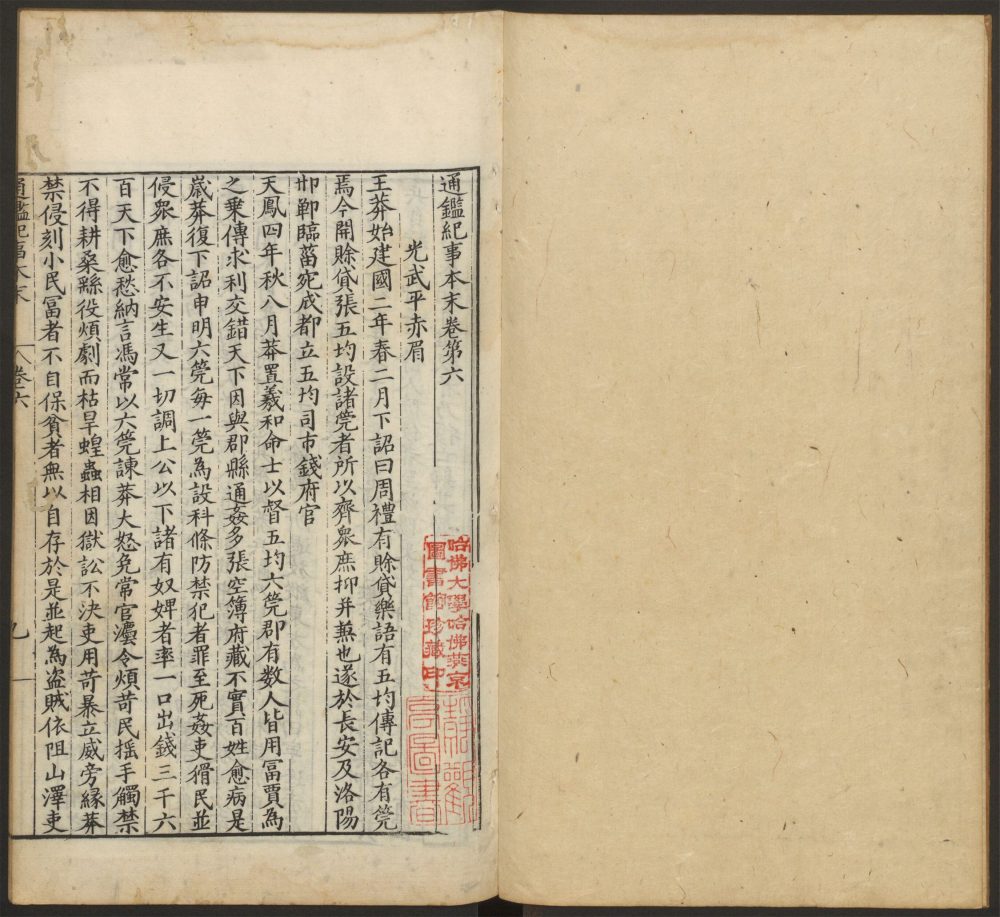 通鑑紀事本末卷第六
光武平赤眉
王莽始建國二年春二月下詔曰周禮有賒貸樂語有五均傳記各有筦
焉今開賒貸張五均設諸筦者所以齊衆庶抑并兼也遂於長安及洛陽
邯鄲臨菑宛成都立五均司市錢府官
天鳳四年秋八月莽置羲和命士以督五均六筦郡有数人皆用富賈為
之乗傳求利交錯天下因與郡縣通姦多張空簿府藏不實百姓愈病是
歳莽復下詔申明六筦每一筦為設科條防禁犯者罪至死姦吏猾民並
侵衆庶各不安生又一切調上公以下諸有奴婢者率一口出錢三千六
百天下愈愁納言馮常以六筦諫莽大怒免常官灋令煩苛民揺手觸禁
不得耕桑繇役煩劇而枯旱蝗蟲相因獄訟不決吏用苛暴立威旁縁莽
禁侵刻小民富者不自保貧者無以自存於是並起為盗賊依阻山澤吏
通鑑紀事本末 卷六 九
哈佛大學哈佛燕京
圖書館珍藏印